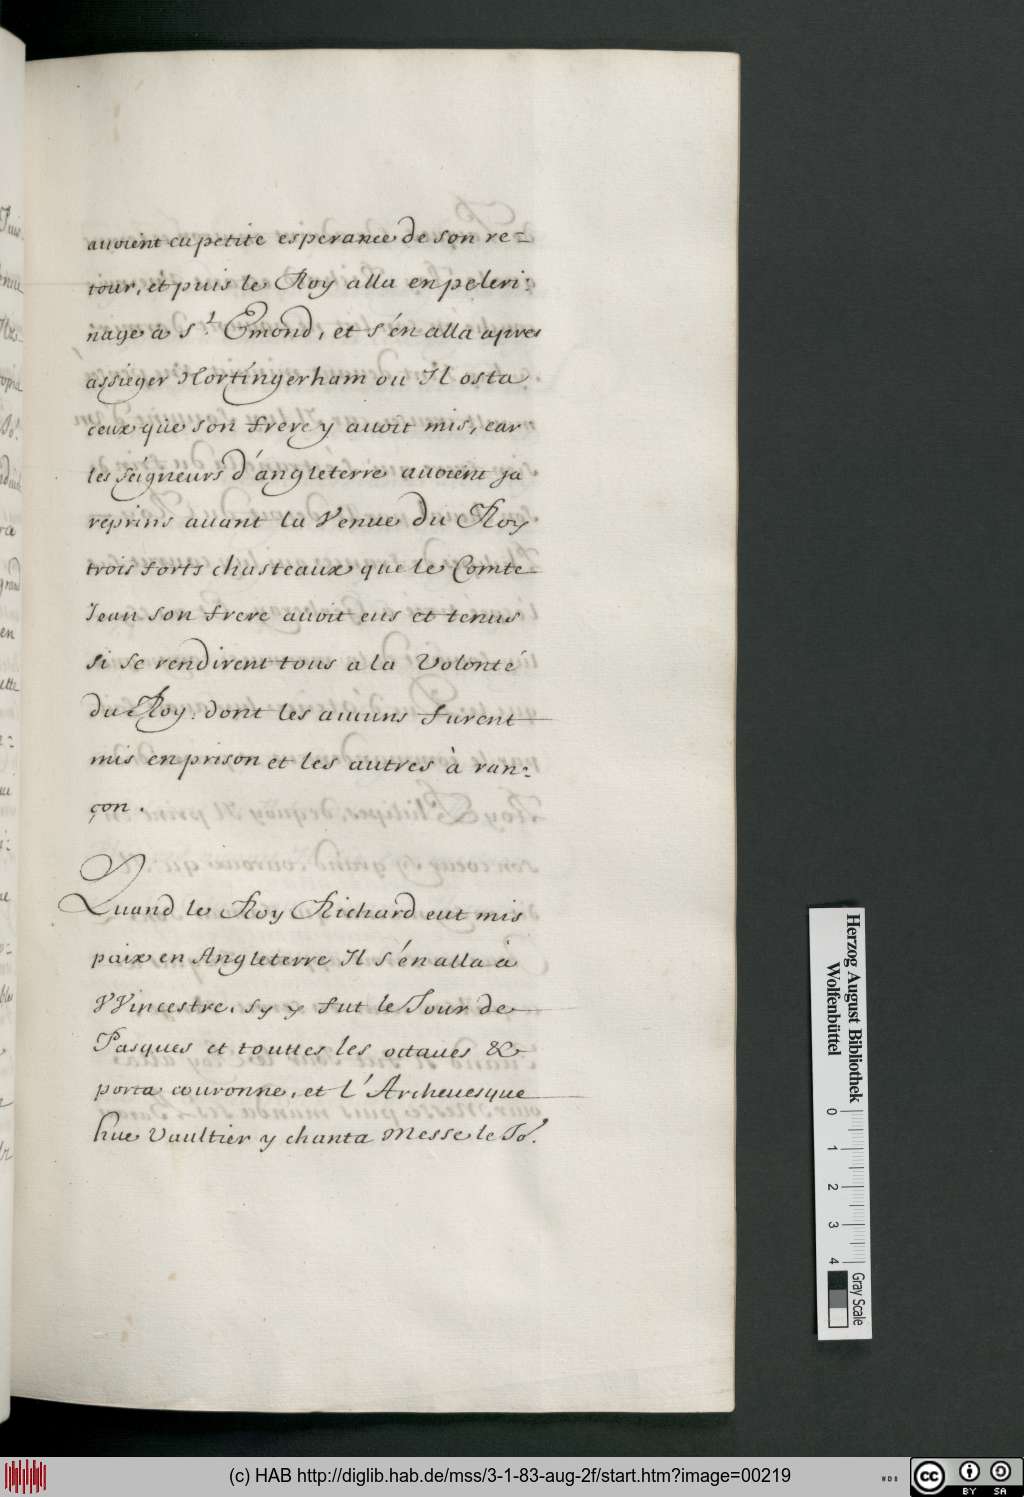 auoient eu petite esperance de son re-
tour, et puis le Roy alla en peleri-
nage a S.t Emond, et s'én alla apres
assieger Nortingerham ou Il osta
ceux que son frere y auoit mis, car
les seigneurs d'angleterre auoient ja
reprins auant la Venue du Roy
trois forts chasteaux que le Comte
Jean son frere auoit eus et tenus
si se rendirent tous a la Volonté
du Roy. dont les aucuns furent
mis en prison et les autres à ran-
çon.
Quand le Roy Richard eut mis
paix en Angleterre Il s'én alla à
VVincestre, sy y fut le Jour de
Pasques et touttes les octaues &
porta couronne, et l'Archeuesque
hue Vaultier y chanta Messe le Jo.r
Herzog August Bibliothek
Wolfenbüttel
0 1 2 3 4
Gray Scale
(c) HAB http://diglib.hab.de/mss/3-1-83-aug-2f/start.htm?image=00219
WDB
cc BY SA